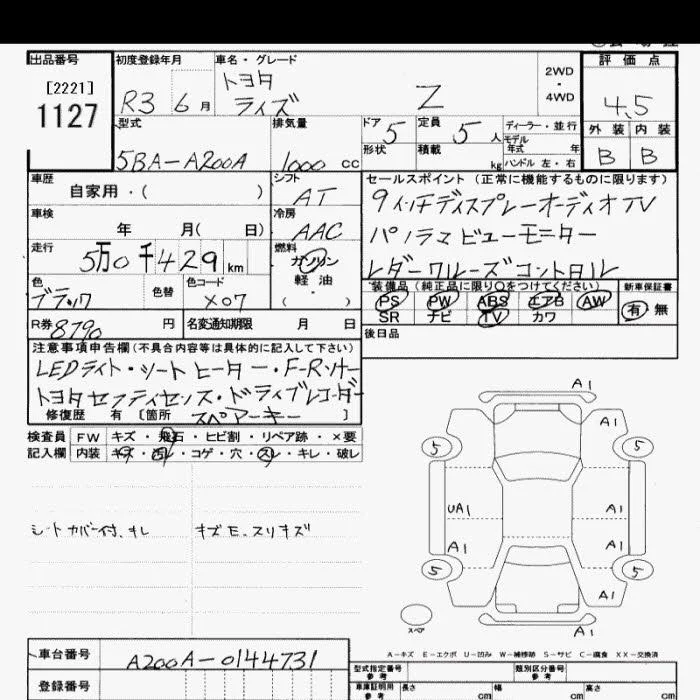 出品番号
[2221]
1127
初度登録年月
R3 6月
車名・グレード
トヨタ
ライズ
Z
2WD
・
4WD
評価点
4.5
外装 内装
B B
型式
5BA-A200A
排気量
1000 cc
ドア 5
形状
定員 5 人
積載 kg
ディーラー・並行
モデル
年式 年
ハンドル 左・右
車歴
自家用・( )
シフト
AT
車検
年 月( 日)
冷房
AAC
走行
5万0千429 km
燃料
ガソリン
軽油
・
( )
色
ブラック
色替
色コード
X07
R券 8790 円
名変通知期限 月 日
セールスポイント (正常に機能するものに限ります)
9インチディスプレーオーディオTV
パノラマビューモニター
レダークルーズコントロル
装備品(純正品に限り○をつけてください)
PS PW ABS エアB AW
SR ナビ TV カワ
新車保証書
有 無
後日品
注意事項申告欄(不具合内容等は具体的に記入して下さい)
LEDライト・シートヒーター・F-Rソナー
トヨタセフティセンス・ドライブレコーダー
修復歴 有 [箇所 スペアーキー ]
検査員 FW キズ・飛石・ヒビ割・リペア跡・×要
記入欄 内装 キズ・凹・コゲ・穴・スレ・キレ・破レ
シートカバー付、キレ
キズE、スリキズ
A1
A1
5 5
UA1 A1
A1 A1
5 5
A1
スペア
A1
A-キズ E-エクボ U-凹み W-補修跡 S-サビ C-腐食 XX-交換済
車台番号
A200A-0144731
登録番号
型式指定番号
参考
類別区分番号
参考
車庫証明用
参考
長さ cm 幅 cm 高さ cm